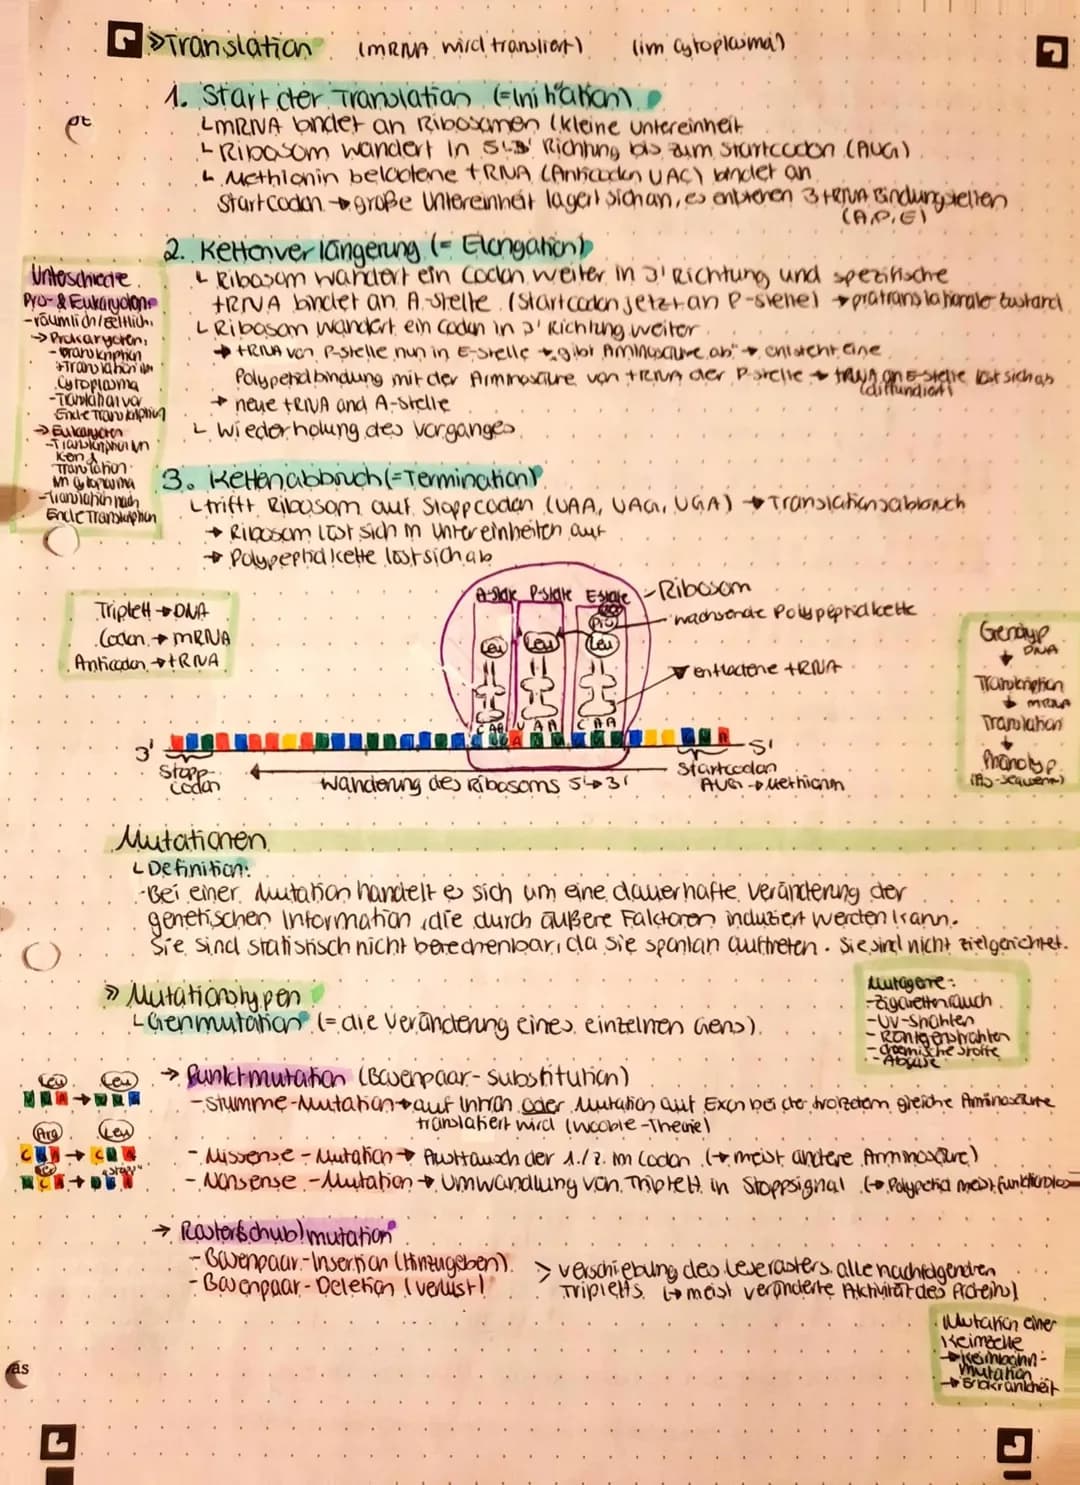 »Translation (mRNA wird transliert) (im Cytoplasma)
1. Start der Translation (=Initiation)
↳mRNA bindet an Ribosomen (kleine Untereinheit
↳Ribosom wandert in 5'↳3' Richtung bis zum Startcodon (AUG)
↳Methionin beladene tRNA (Anticodon UAC) bindet an
Startcodon → große Untereinheit lagert sich an, es entstehen 3 tRNA Bindungstellen
(A,P,E)
2. Kettenverlängerung (= Elongation)
↳Ribosom wandert ein Codon weiter in 3' Richtung und spezifische
tRNA bindet an A-Stelle (Startcodon jetzt an P-Stelle) → prätranslationaler Zustand
↳Ribosom wandert ein Codon in 3' Richtung weiter
→ tRNA von P-Stelle nun in E-Stelle → „gibt Aminosäure ab" → entsteht eine
Polypeptidbindung mit der Aminosäure von tRNA der P-Stelle → tRNA an E-Stelle löst sich ab
(diffundiert)
→ neue tRNA and A-Stelle
↳ Wiederholung des Vorganges
Unterschiede
Pro- & Eukaryoten
-räumlich/zeitlich:
→ Prokaryoten:
-Transkription
+Translation im
Cytoplasma
-Translation vor
Ende Transkription
→ Eukaryoten
-Transkription im
Kern &
Translation
im Cytoplasma
-Translation nach
Ende Transkription
3. Kettenabbruch (=Termination)
↳trifft Ribosom auf Stoppcodon (UAA, UAG, UGA) → Translationsabbruch
→ Ribosom löst sich in Untereinheiten auf
→ Polypeptidkette löst sich ab
Triplett → DNA
Codon → mRNA
Anticodon → tRNA
A-Stelle P-Stelle E-Stelle
Ribosom
wachsende Polypeptidkette
Pro
Leu Leu Leu
entladene tRNA
C A A
3' 5'
Stopp-
codon
Wanderung des Ribosoms 5'↳3'
Startcodon
AUG → Methionin
Genotyp
↓ DNA
Transkription
↓ mRNA
Translation
↓
Phänotyp
(AS-Sequenz)
Mutationen
↳Definition:
-Bei einer Mutation handelt es sich um eine dauerhafte Veränderung der
genetischen Information, die durch äußere Faktoren induziert werden kann.
Sie sind statistisch nicht berechenbar, da sie spontan auftreten. Sie sind nicht zielgerichtet.
» Mutationstypen
↳Genmutation (= die Veränderung eines einzelnen Gens)
Mutagene:
-Zigarettenrauch
-UV-Strahlen
-Röntgenstrahlen
-chemische Stoffe
-Abgase
→ Punktmutation (Basenpaar-Substitution)
-Stumme-Mutation → auf Intron oder Mutation auf Exon bei der trotzdem gleiche Aminosäure
translatiert wird (Wobble-Theorie)
-Missense-Mutation → Austausch der 1./2. im Codon (→ meist andere Aminosäure)
-Nonsense-Mutation → Umwandlung von Triplett in Stoppsignal (→ Polypeptid meist funktionslos
Leu Leu
Arg Leu
C → C
"Stopp"
→ Raster(schub)mutation
-Basenpaar-Insertion (Hinzugeben)
-Basenpaar-Deletion (Verlust)
> Verschiebung des Leserasters alle nachfolgenden
Tripletts (→ meist veränderte Aktivität des Proteins)
Mutation einer
Keimzelle
→ Keimbahn-
mutation
→ Erbkrankheit